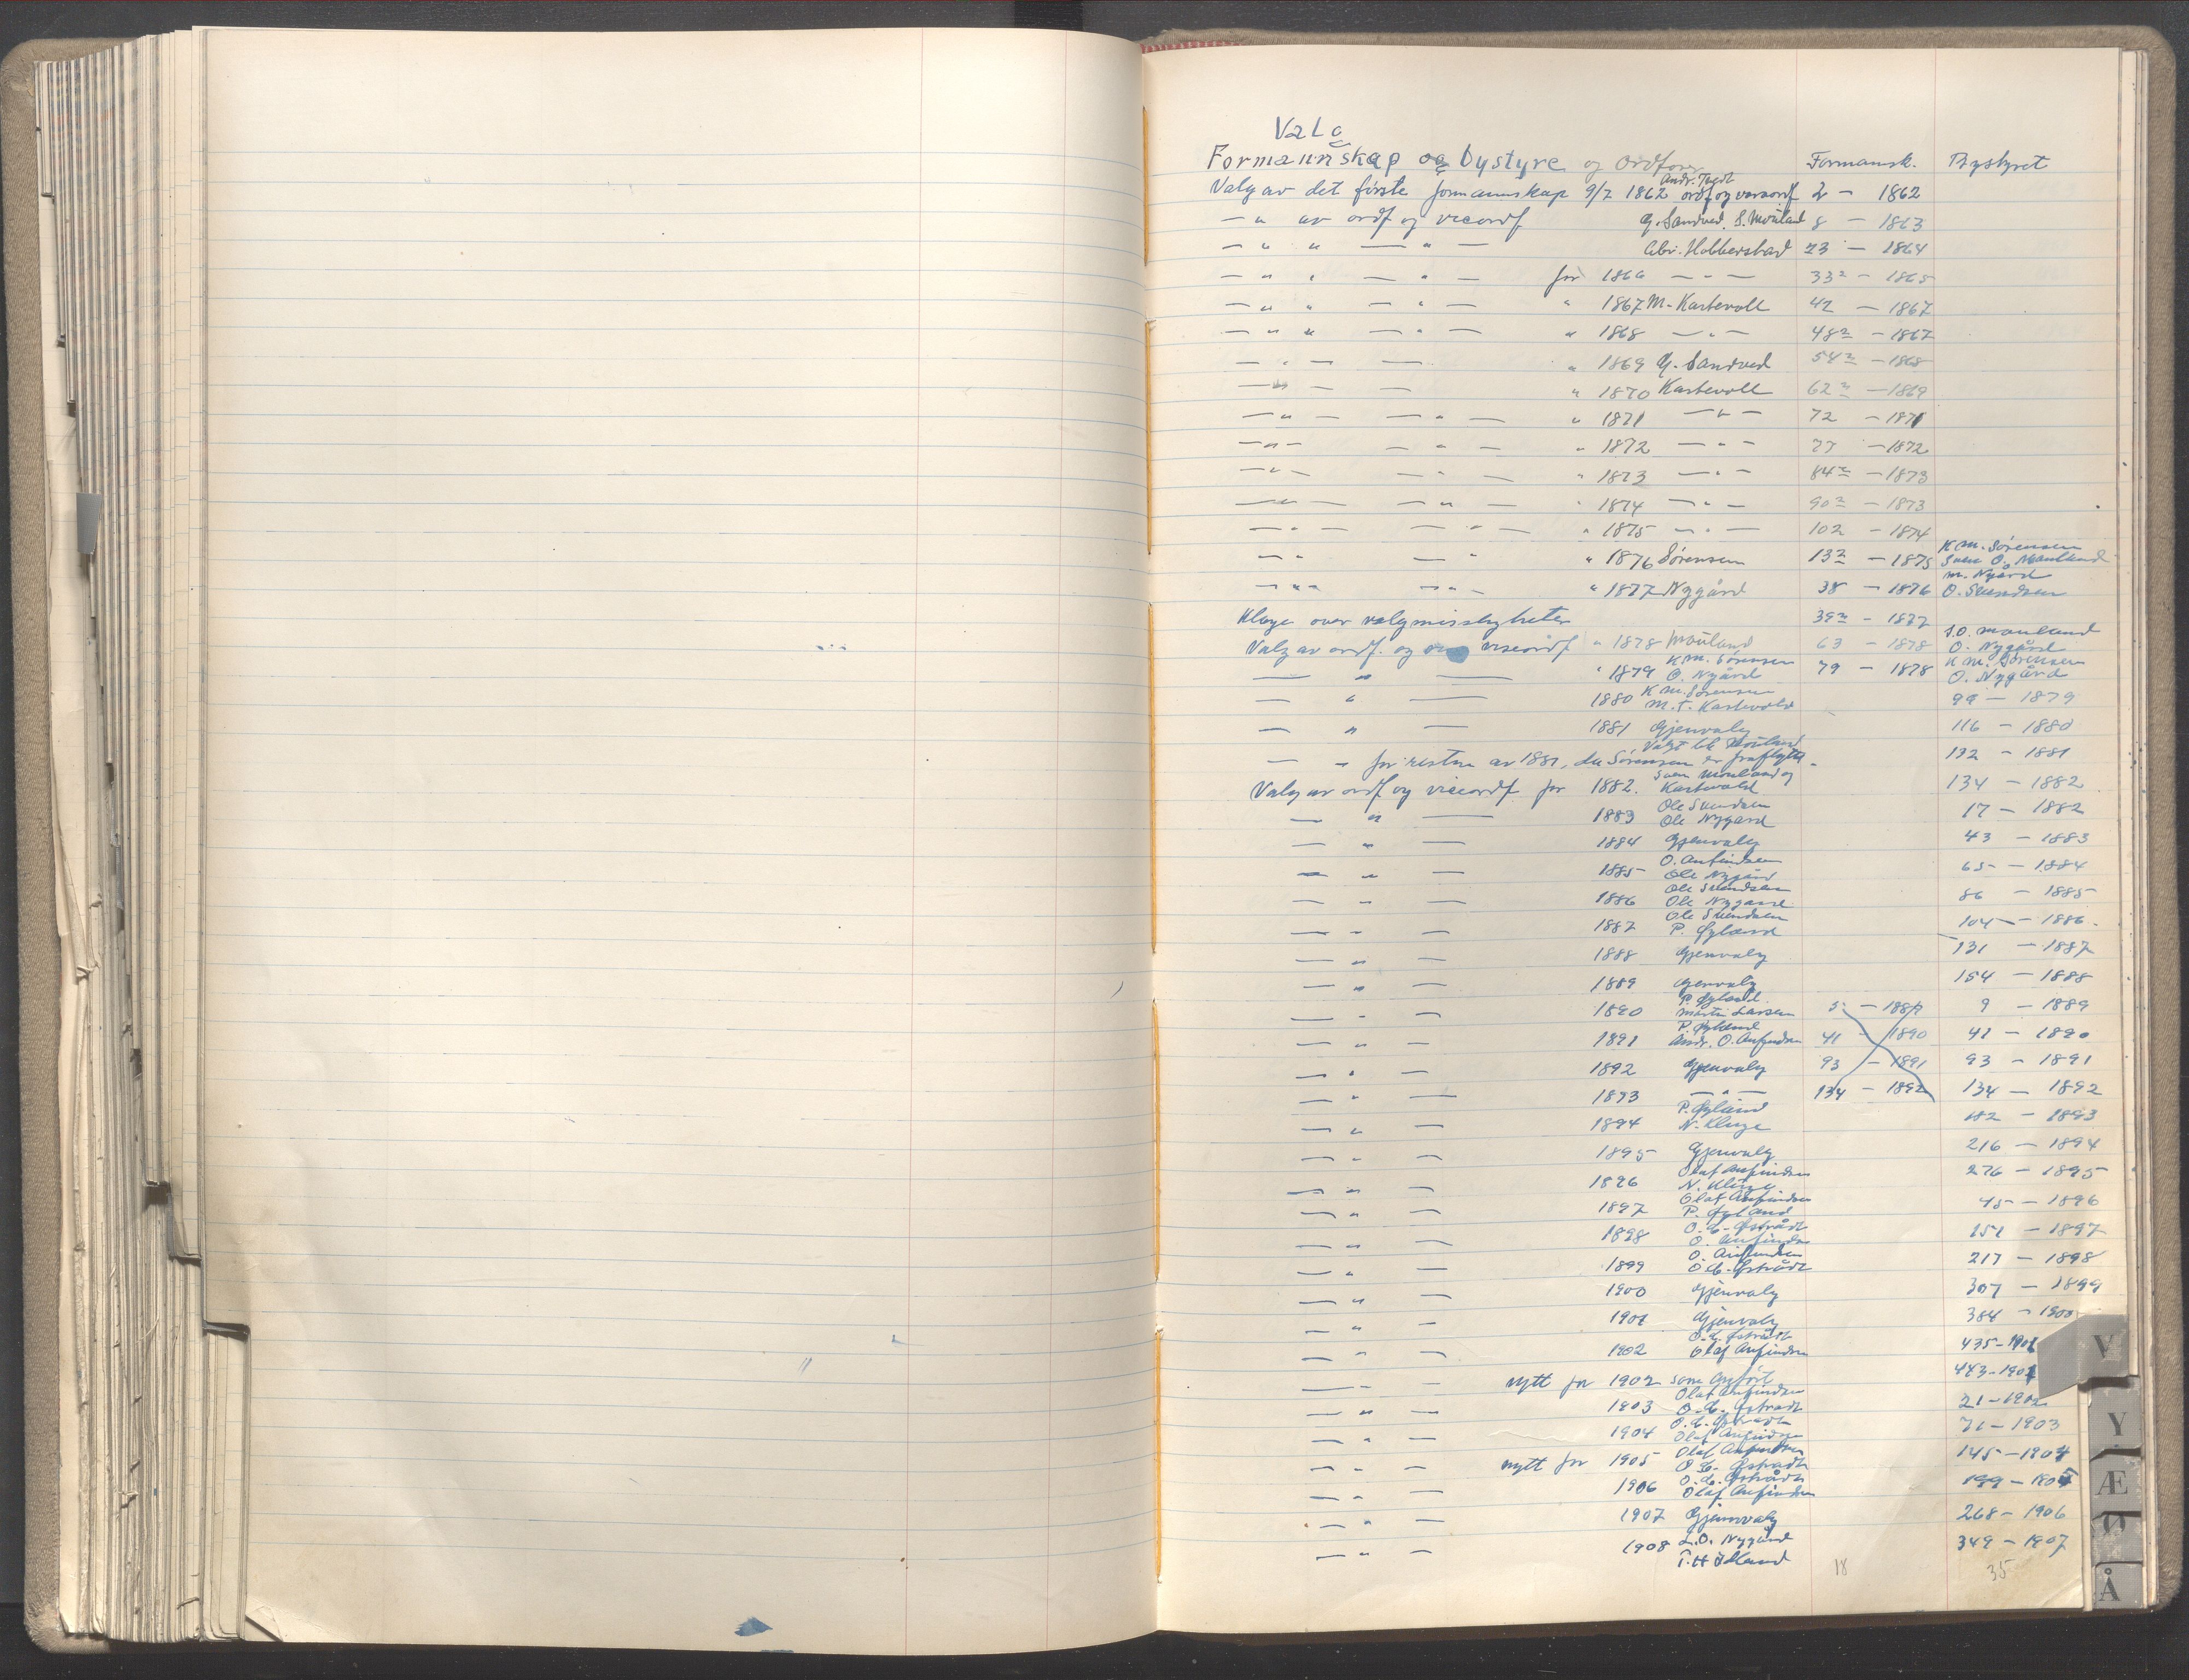 Valg
Formannskap og bystyre og ordfører Formansk. Bystyret
Andr. Tvedt
Valg av det første formannskap 9/7 1862 ordf og varaordf 2 - 1862
— " av ordf og viceordf G. Sandved. S. Mauland 8 - 1863
— " " — " — Hobberstad 23 - 1864
— " " — " — for 1866 — " — 33² - 1865
— " " — " — " 1867 M. Kartevoll 42 - 1867
— " " — " — " 1868 — " — 48² - 1867
— " — — " 1869 G. Sandved 54² - 1868
— " — — " 1870 Kartevoll 62² - 1869
— " — — " — " 1871 — " — 72 - 1871
— " — — " — " 1872 — " — 77 - 1872
— " — — " — " 1873 — " — 84² - 1873
— " — — " — " 1874 — " — 90² - 1873
— " — — " — " 1875 — " — 102 - 1874
K M. Sørensen
— " — " " 1876 Sørensen 13² - 1875 Sven O. Mauland
M. Nygård
— " " — " — " 1877 Nygård 38 - 1876 O. Svendsen
Klage over valgmissligheter 39² - 1877
S.O. Mauland
Valg av ordf. og viseordf " 1878 Mauland 63 - 1878 O. Nygård
K M. Sørensen K M. Sørensen
— " — " 1879 O. Nygård 79 - 1878 O. Nygård
K M. Sørensen
— " — 1880 M. T. Kartevold 99 - 1879
— " — 1881 Gjenvalg 116 - 1880
Valgt ble Mauland
— " for resten av 1881, da Sørensen er fraflyttet 132 - 1881
Sven Mauland og
Valg av ordf og viceordf for 1882. Kartevold 134 - 1882
Ole Svendsen
— " — 1883 Ole Nygård 17 - 1882
— " — 1884 Gjenvalg 43 - 1883
O. Anfindsen
— " — 1885 Ole Nygård 65 - 1884
Ole Svendsen
— " — 1886 Ole Nygaard 86 - 1885
Ole Svendsen
— " — 1887 P. Øgland 104 - 1886.
— " — 1888 Gjenvalg 131 - 1887
— " — 1889 Gjenvalg 154 - 1888
P. Øgland.
— " — 1890 Martin Larsen 5 - 1889 9 - 1889
P. Øgland
— " — 1891 Andr. O. Anfindsen 41 - 1890 41 - 1890
— " — 1892 Gjenvalg 93 - 1891 93 - 1891
— " — 1893 — " — 134 - 1892 134 - 1892
P. Øgland
— " — 1894 N. Kluge 182 - 1893
— " — 1895 Gjenvalg 216 - 1894
Olaf Anfindsen
— " — 1896 N. Kluge 276 - 1895
Olaf Anfindsen
— " — 1897 P. Øgland 45 - 1896
O. C. Østrådt
— " — 1898 O. Anfindsen 151 - 1897
O. Anfindsen
— " — 1899 O. C. Østrådt 217 - 1898
— " — 1900 Gjenvalg 307 - 1899
— " — 1901 Gjenvalg 384 - 1900
O. C. Østrådt
— " — 1902 Olaf Anfindsen 435 - 1901
— " — nytt for 1902 som anført 443 - 1901
Olaf Anfindsen
— " — 1903 O. C. Østradt 21 - 1902
O. C. Østradt
— " — 1904 Olaf Anfindsen 71 - 1903
Olaf Anfindsen
— " — nytt for 1905 O. C. Østradt 145 - 1904
O. C. Østrådt
— " — 1906 Olaf Anfindsen 199 - 1905
— " — 1907 Gjenvalg 268 - 1906
L.O. Nygård
— " — 1908 T. H. 349 - 1907
18 35
V
Y
Æ
Ø
Å